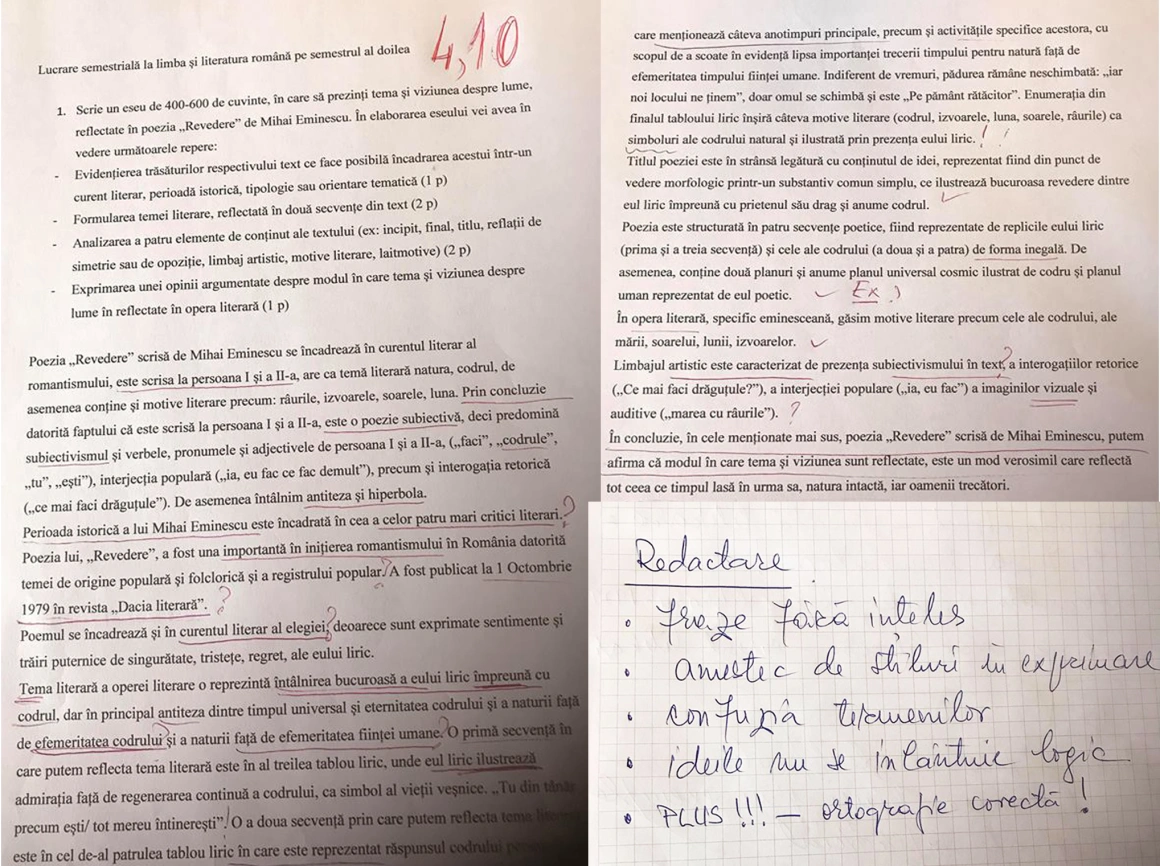 Lucrare semestrială la limba și literatura română pe semestrul al doilea
4,10
1. Scrie un eseu de 400-600 de cuvinte, în care să prezinți tema și viziunea despre lume,
reflectate în poezia „Revedere” de Mihai Eminescu. În elaborarea eseului vei avea în
vedere următoarele repere:
- Evidențierea trăsăturilor respectivului text ce face posibilă încadrarea acestui într-un
curent literar, perioadă istorică, tipologie sau orientare tematică (1 p)
- Formularea temei literare, reflectată în două secvențe din text (2 p)
- Analizarea a patru elemente de conținut ale textului (ex: incipit, final, titlu, reflații de
simetrie sau de opoziție, limbaj artistic, motive literare, laitmotive) (2 p)
- Exprimarea unei opinii argumentate despre modul în care tema și viziunea despre
lume în reflectate în opera literară (1 p)
Poezia „Revedere” scrisă de Mihai Eminescu se încadrează în curentul literar al
romantismului, este scrisa la persoana I și a II-a, are ca temă literară natura, codrul, de
asemenea conține și motive literare precum: râurile, izvoarele, soarele, luna. Prin concluzie
datorită faptului că este scrisă la persoana I și a II-a, este o poezie subiectivă, deci predomină
subiectivismul și verbele, pronumele și adjectivele de persoana I și a II-a, („faci”, „codrule”,
„tu”, „ești”), interjecția populară („ia, eu fac ce fac demult”), precum și interogația retorică
(„ce mai faci drăguțule”). De asemenea întâlnim antiteza și hiperbola.
Perioada istorică a lui Mihai Eminescu este încadrată în cea a celor patru mari critici literari. ?
Poezia lui, „Revedere”, a fost una importantă în inițierea romantismului în România datorită
temei de origine populară și folclorică și a registrului popular. ? A fost publicat la 1 Octombrie
1979 în revista „Dacia literară”. ?
Poemul se încadrează și în curentul literar al elegiei, ? deoarece sunt exprimate sentimente și
trăiri puternice de singurătate, tristețe, regret, ale eului liric.
Tema literară a operei literare o reprezintă întâlnirea bucuroasă a eului liric împreună cu
codrul, dar în principal antiteza dintre timpul universal și eternitatea codrului și a naturii față
de efemeritatea codrului și a naturii față de efemeritatea ființei umane. ? O primă secvență în
care putem reflecta tema literară este în al treilea tablou liric, unde eul liric ilustrează
admirația față de regenerarea continuă a codrului, ca simbol al vieții veșnice. „Tu din tânăr
precum ești/ tot mereu întinerești” ! O a doua secvență prin care putem reflecta tema literară
este în cel de-al patrulea tablou liric în care este reprezentat răspunsul codrului
care menționează câteva anotimpuri principale, precum și activitățile specifice acestora, cu
scopul de a scoate în evidență lipsa importanței trecerii timpului pentru natură față de
efemeritatea timpului ființei umane. Indiferent de vremuri, pădurea rămâne neschimbată: „iar
noi locului ne ținem”, doar omul se schimbă și este „Pe pământ rătăcitor”. Enumerația din
finalul tabloului liric înșiră câteva motive literare (codrul, izvoarele, luna, soarele, râurile) ca
simboluri ale codrului natural și ilustrată prin prezența eului liric. ! !
Titlul poeziei este în strânsă legătură cu conținutul de idei, reprezentat fiind din punct de
vedere morfologic printr-un substantiv comun simplu, ce ilustrează bucuroasa revedere dintre
eul liric împreună cu prietenul său drag și anume codrul.
Poezia este structurată în patru secvențe poetice, fiind reprezentate de replicile eului liric
(prima și a treia secvență) și cele ale codrului (a doua și a patra) de forma inegală. De
asemenea, conține două planuri și anume planul universal cosmic ilustrat de codru și planul
uman reprezentat de eul poetic. Ex ?
În opera literară, specific eminesceană, găsim motive literare precum cele ale codrului, ale
mării, soarelui, lunii, izvoarelor.
Limbajul artistic este caracterizat de prezența subiectivismului în text, ? a interogațiilor retorice
(„Ce mai faci drăguțule?”), a interjecției populare („ia, eu fac”) a imaginilor vizuale și
auditive („marea cu râurile”). ?
În concluzie, în cele menționate mai sus, poezia „Revedere” scrisă de Mihai Eminescu, putem
afirma că modul în care tema și viziunea sunt reflectate, este un mod verosimil care reflectă
tot ceea ce timpul lasă în urma sa, natura intactă, iar oamenii trecători.
Redactare
• fraze fără înțeles
• amestec de stiluri în exprimare
• confuzia termenilor
• ideile nu se înlănțuie logic
• PLUS!!! – ortografie corectă!